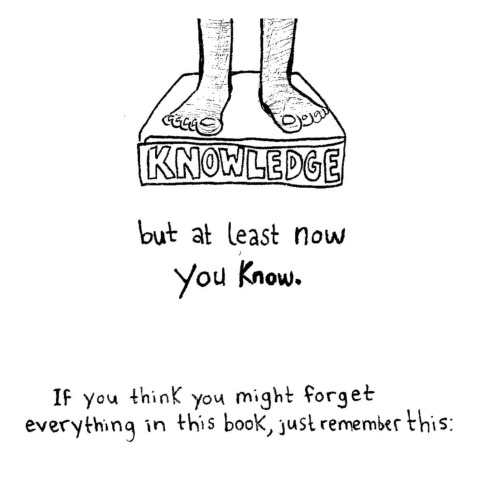 KNOWLEDGE
but at least now
you know.
If you think you might forget
everything in this book, just remember this: